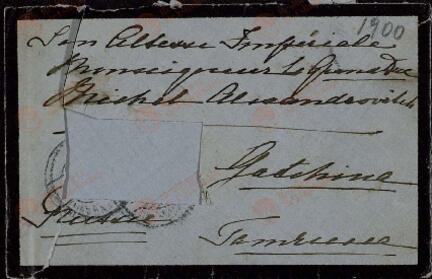 1900
Son Altesse Impériale
Monseigneur le Grand Duc
Michel Alexandrovitch
Gatchina
Russie
Гатчина